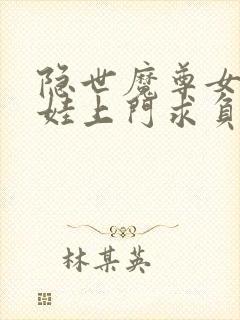 隐世魔尊女
娃上門求負
林某英